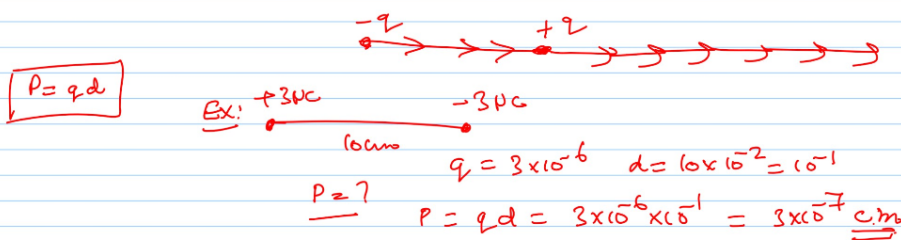 -q +q
P = qd
Ex: +3μC -3μC
10cm
q = 3×10⁻⁶ d = 10×10⁻² = 10⁻¹
P = ?
P = qd = 3×10⁻⁶×10⁻¹ = 3×10⁻⁷ c.m